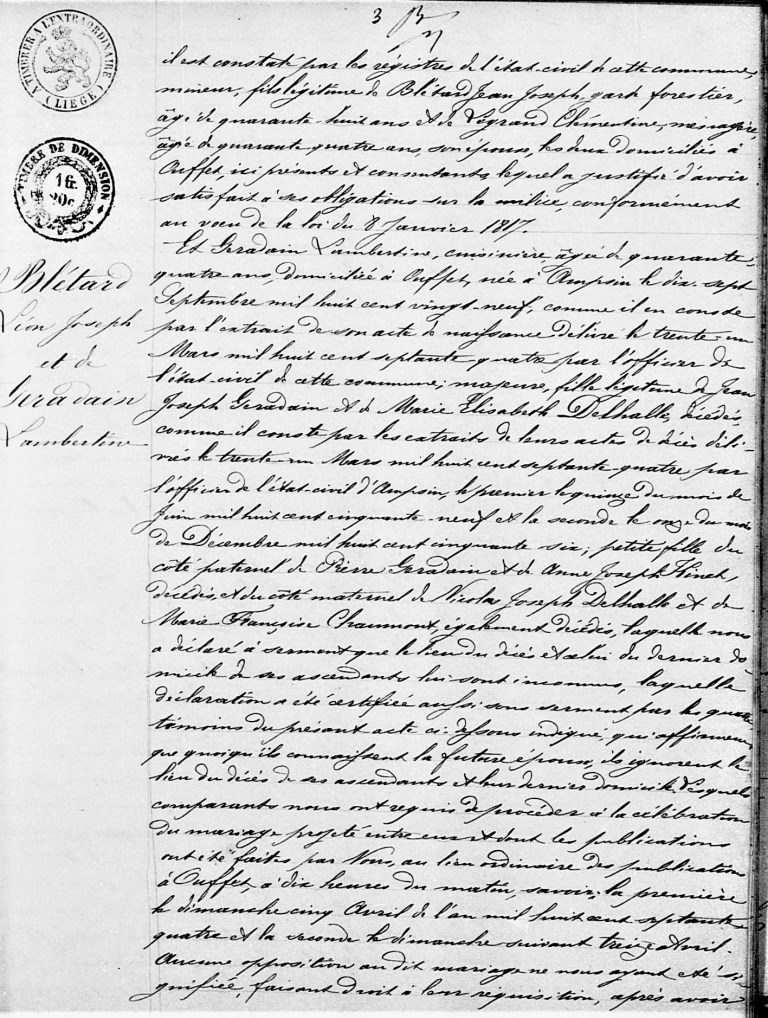 3
A TIMBRER A L'EXTRAORDINAIRE
(LIEGE)
TIMBRE DE DIMENSION
1 fr.
20c.
Blétard
Léon Joseph
et de
Geradain
Lambertine
il est constaté par les régistres de l'état-civil de cette commune,
mineur, fils légitime de Blétard Jean Joseph, garde forestier,
âgé de quarante-huit ans et de Legrand Clémentine, ménagère,
âgée de quarante-quatre ans, son épouse, les deux domiciliés à
Ouffet, ici présents et consentants, lequel a justifié d'avoir
satisfait à ses obligations sur la milice, conformément
au vœu de la loi du 8 Janvier 1817.
Et Geradain Lambertine, cuisinière, âgée de quarante-
quatre ans, domiciliée à Ouffet, née à Ampsin le dix-sept
Septembre mil huit cent vingt-neuf, comme il en conste
par l'extrait de son acte de naissance délivré le trente-un
Mars mil huit cent septante quatre par l'officier de
l'état-civil de cette commune; majeure, fille légitime de Jean
Joseph Geradain et de Marie Elisabeth Delhalle, décédés,
comme il conste par les extraits de leurs actes de décès déli-
vrés le trente-un Mars mil huit cent septante-quatre, par
l'officier de l'état-civil d'Ampsin, le premier le quinze du mois de
Juin mil huit cent cinquante-neuf et la seconde le onze du mois
de Décembre mil huit cent cinquante-six; petite fille du
côté paternel de Pierre Geradain et de Anne Joseph
décédés et du côté maternel de Nicolas Joseph Delhalle et de
Marie Françoise Chaumont, également décédés, laquelle nous
a déclaré à serment que le lieu du décès et celui du dernier do
micile de ses ascendants lui sont inconnus, laquelle
déclaration a été certifiée aussi sous serment par les quatre
témoins du présent acte ci-dessous indiqué, qui affirment
que quoiqu'ils connaissent la future épouse, ils ignorent le
lieu du décès de ses ascendants et leur dernier domicile. Lesquels
comparants nous ont requis de procéder à la célébration
du mariage projeté entre eux et dont les publications
ont été faites par Nous, au lieu ordinaire des publications
à Ouffet, à dix heures du matin, savoir: la première
le dimanche cinq Avril de l'an mil huit cent septante
quatre et la seconde le dimanche suivant treize Avril.
Aucune opposition au dit mariage ne nous ayant été si
gnifiée, faisant droit à leur réquisition, après avoir